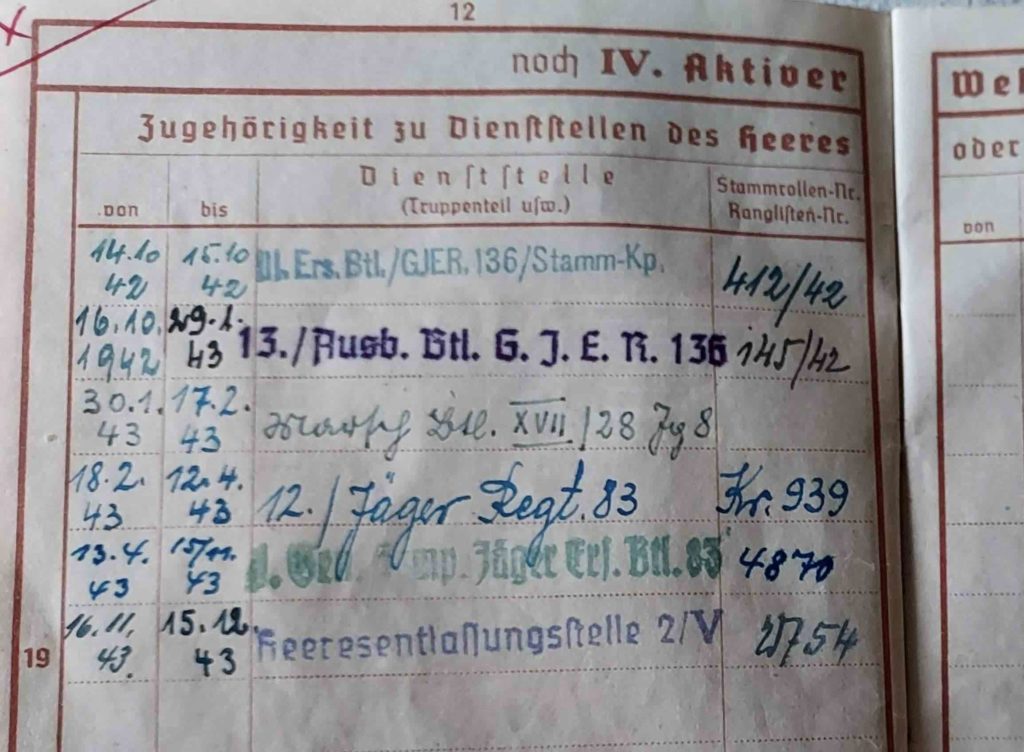 12
noch IV. Aktiver
Zugehörigkeit zu Dienststellen des Heeres
Dienststelle
(Truppenteil usw.)
von bis
Stammrollen-Nr.
Ranglisten-Nr.
14.10 42 15.10 42 Ers. Btl./GJER. 136/Stamm-Kp. 412/42
16.10. 1942 29.1. 43 13./Ausb. Btl. G. J. E. R. 136 145/42
30.1. 43 17.2. 43 Marsch Btl. XVII/28 Jg 8
18.2. 43 12.4. 43 12./Jäger Regt. 83 Kr. 939
13.4. 43 15/11. 43 Jäger Ers. Btl. 83 4870
16.11. 43 15.12. 43 Heeresentlassungsstelle 2/V
19
oder
von